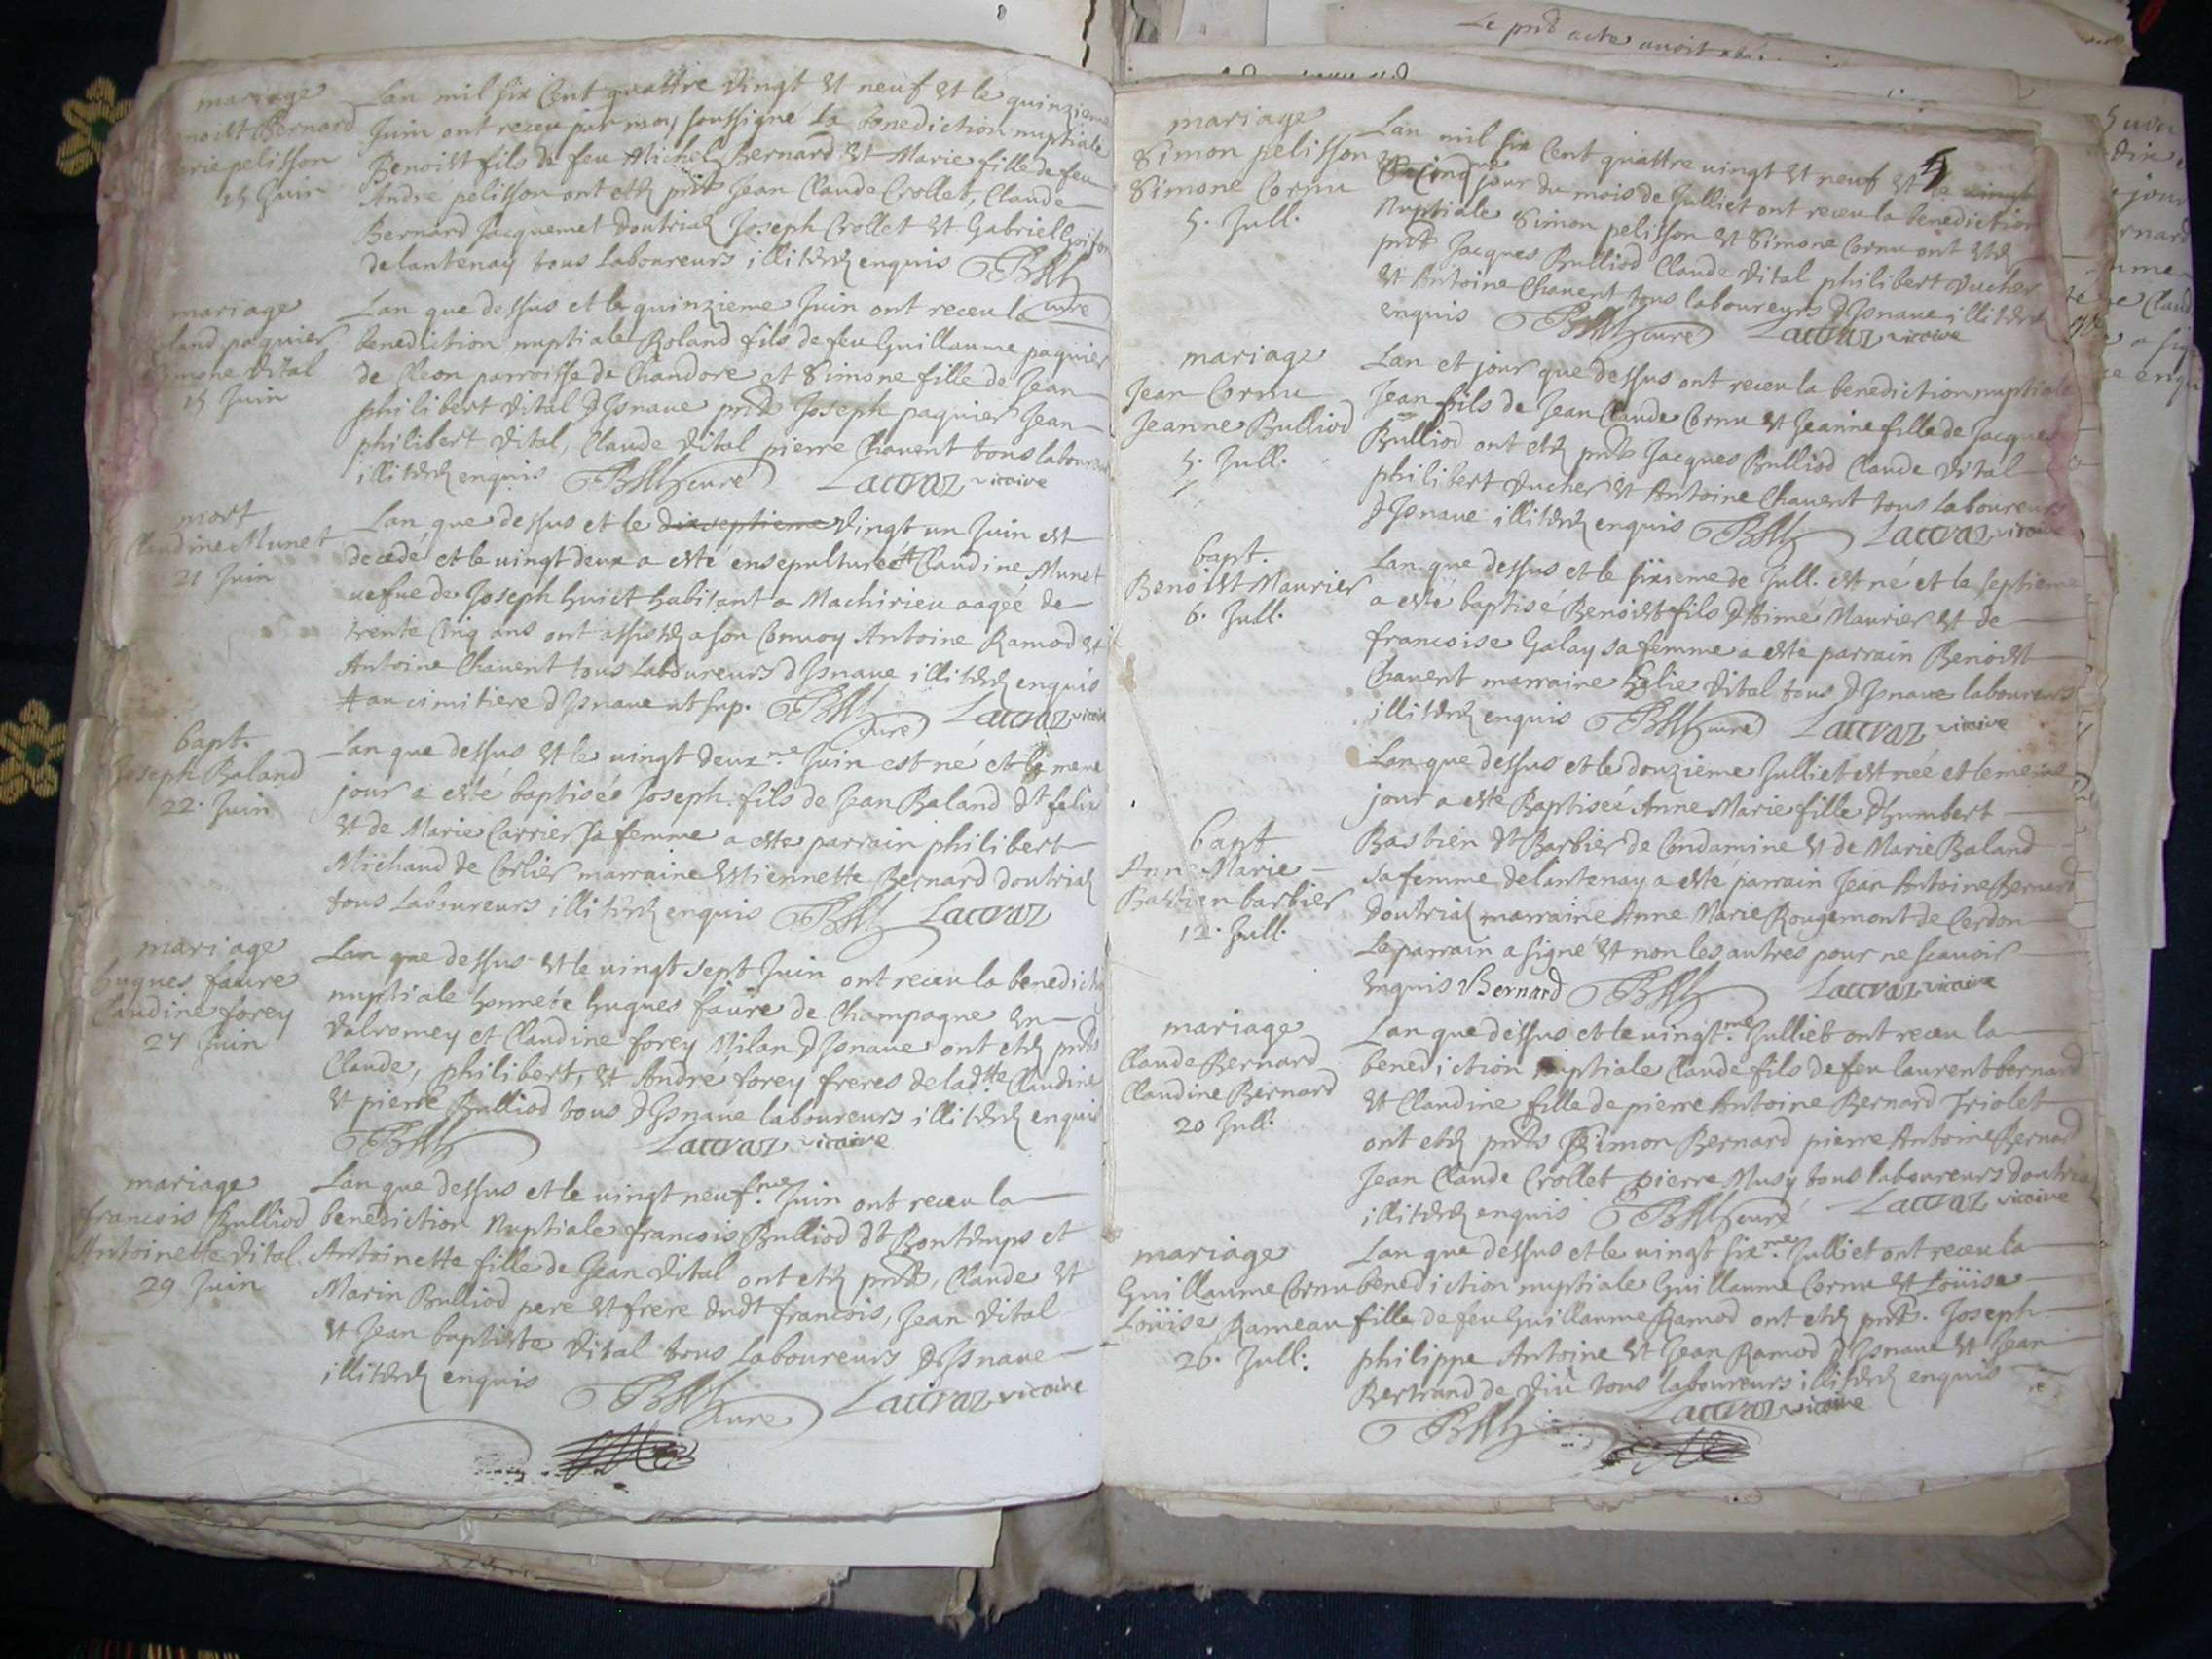 mariage
Benoist Bernard
Marie pelisson
15 Juin
Lan mil six Cent quattre Vingt et neuf et le quinzieme
Juin ont receu par moy soussigné La benediction nuptiale
Benoist fils de feu Michel Bernard et Marie fille de feu
Andre pelisson ont etez pnts Jean Claude Crollet, Claude
Bernard Jacquemet doutriaz Joseph Crollet et Gabriel
delantenay tous Laboureurs illiterez enquis
curé
mariage
Roland paquier
Simone Vital
15 Juin
Lan que dessus et le quinzieme Juin ont receu la
benediction nuptiale Roland fils de feu Guillaume paquier
de Cleon parroisse de Chandore et Simone fille de Jean
philibert Vital dIsnaue pnts Joseph paquier Jean
philibert Vital, Claude Vital pierre Chauent tous laboureurs
illiterez enquis curé Lacraz vicaire
mort
Claudine Munet
21 Juin
Lan que dessus et le dixseptieme Vingt un Juin est
decedé et le uingt deux a esté ensepulturée # Claudine Munet
uefue de Joseph huict habitant a Machirieu aageé de
trente Cinq ans ont assistez a son Conuoy Antoine Ramod et
Antoine Chauent tous Laboureurs dIsnaue illiterez enquis
# au cimitiere dIsnaue ut sup. curé Lacraz vicaire
bapt.
Joseph Baland
22. Juin
Lan que dessus et le uingt deux.me Juin est né et le meme
jour a esté baptisée Joseph fils de Jean Baland dt felix
et de Marie Carrier sa femme a este parrain philibert
Michaud de Corlier marraine Estiennette Bernard doutriaz
tous Laboureurs illiterez enquis Lacraz
mariage
hugues faure
Claudine forey
27 Juin
Lan que dessus et le uingt sept Juin ont receu la benedict
nuptiale honnete hugues faure de Champagne en
Valromey et Claudine forey Milan dIsnaue ont etez pnts
Claude, philibert, et André forey freres de ladtte Claudine
et pierre Bulliod tous dIsnaue laboureurs illiterez enquis
Lacraz vicaire
mariage
francois Bulliod
Antoinette Vital.
29 Juin
Lan que dessus et le uingt neuf.me Juin ont receu la
benediction Nuptiale francois Bulliod dt Bontemps et
Antoinette fille de Jean Vital ont etez pnts, Claude et
Marin Bulliod pere et frere dudt francois, Jean Vital
et Jean baptiste Vital tous Laboureurs dIsnaue
illiterez enquis
curé Lacraz vicaire
Le pnt acte auoit
mariage
Simon pelisson
Simone Cornu
5. Jull.
Lan mil six Cent quattre uingt et neuf et le uingt
Cinq me jour du mois de Julliet ont receu la benediction
Nuptiale Simon pelisson et Simone Cornu ont etez
pnts Jacques Bulliod Claude Vital philibert Ducher
et Antoine Chauent tous laboureurs dIsnaue illiterez
enquis curé Lacraz vicaire
mariage
Jean Cornu
Jeanne Bulliod
5. Jull.
Lan et jour que dessus ont receu la benediction nuptiale
Jean fils de Jean Claude Cornu et Jeanne fille de Jacques
Bulliod ont etez pnts Jacques Bulliod Claude Vital
philibert Ducher et Antoine Chauent tous Laboureurs
dIsnaue illiterez enquis Lacraz vicaire
bapt.
Benoist Maurier
6. Jull.
Lan que dessus et le sixieme de Jull. est né et le septieme
a esté baptisé Benoist fils dAimé Maurier et de
francoise Galay sa femme a este parrain Benoist
Chauent marraine Helie Vital tous dIsnaue laboureurs
illiterez enquis curé Lacraz vicaire
bapt
Anne Marie
Bastien barbier
12. Jull.
Lan que dessus et le douzieme Julliet est neé et le meme
jour a este Baptiseé Anne Marie fille dhumbert
Bastien dt Barbier de Condamine et de Marie Baland
sa femme delantenay a esté parrain Jean Antoine Bernard
Doutriaz marraine Anne Marie Rougemont de Cerdon
Le parrain a signé et non les autres pour ne scauoir
enquis Bernard Lacraz vicaire
mariage
Claude Bernard
Claudine Bernard
20 Jull.
Lan que dessus et le uingt.me Julliet ont receu la
benediction nuptiale Claude fils de feu laurent bernard
et Claudine fille de pierre Antoine Bernard Triolet
ont etez pnts Simon Bernard pierre Antoine Bernard
Jean Claude Crollet pierre Musy tous laboureurs doutria
illiterez enquis curé Lacraz vicaire
mariage
Guillaume Cornu
Loüise Rameau
26. Jull.
Lan que dessus et le uingt six.me Julliet ont receu la
benediction nuptiale Guillaume Cornu et Loüise
fille de feu Guillaume Ramod ont etez pnts. Joseph
philippe Antoine et Jean Ramod dIsnaue et Jean
Bertrand de Diu tous laboureurs illiterez enquis
Lacraz vicaire